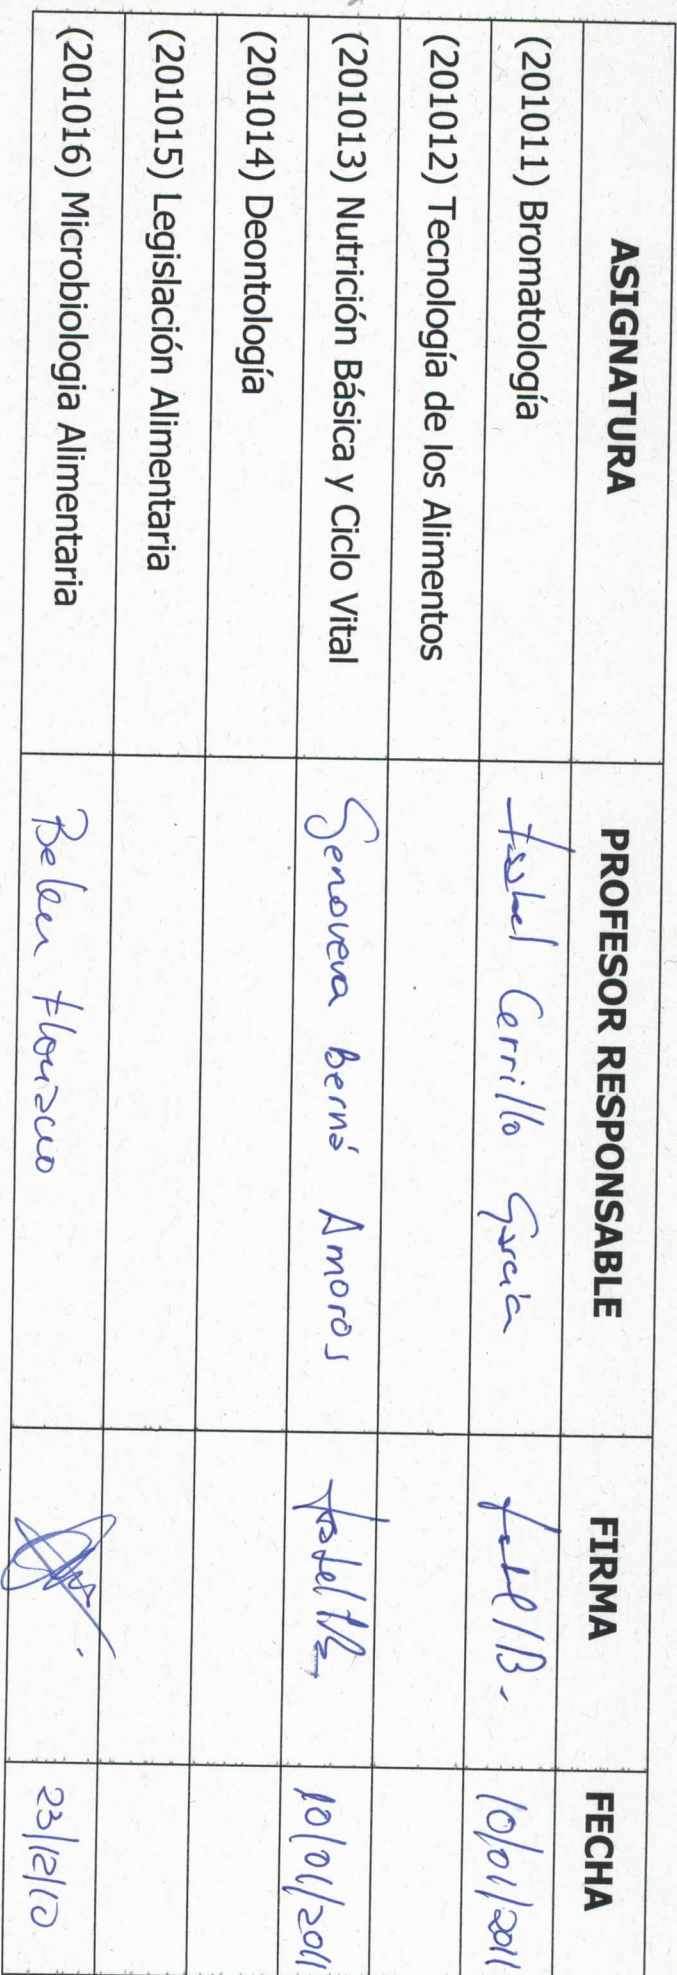 ASIGNATURA PROFESOR RESPONSABLE FIRMA FECHA
(201011) Bromatología Isabel Cerrillo García 10/01/2011
(201012) Tecnología de los Alimentos
(201013) Nutrición Básica y Ciclo Vital Genoveva Berná Amorós 10/01/2011
(201014) Deontología
(201015) Legislación Alimentaria
(201016) Microbiologia Alimentaria Belen Floriano 23/12/10